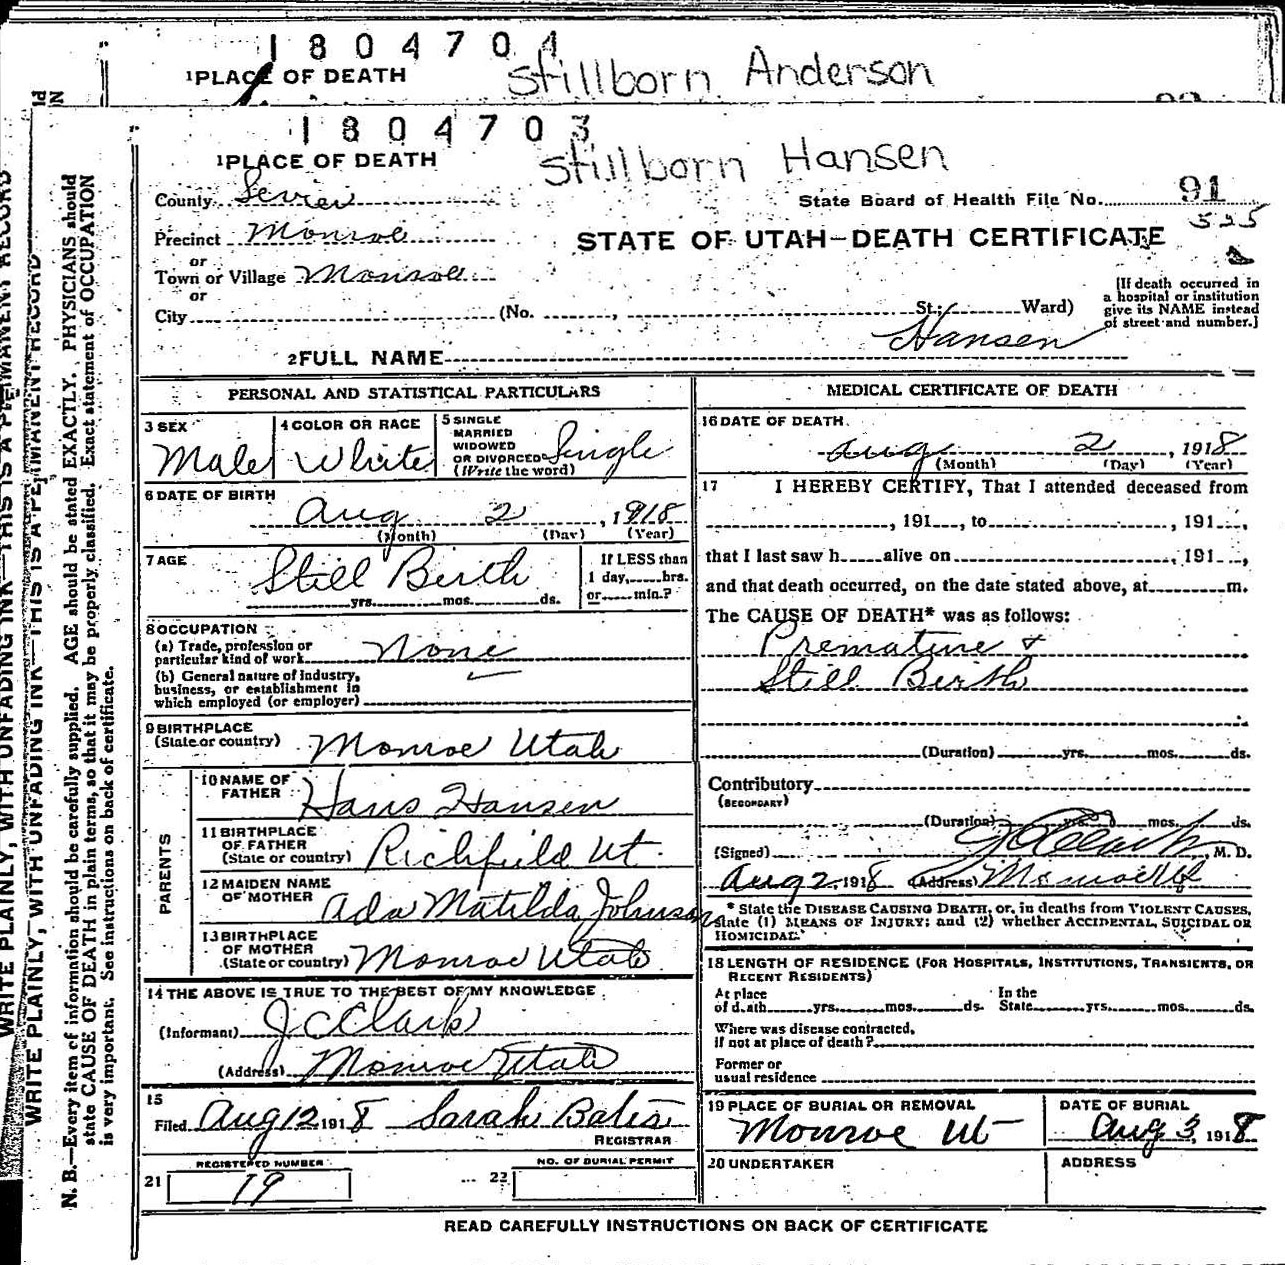 1804704
1PLACE OF DEATH Stillborn Anderson
1804703
1PLACE OF DEATH Stillborn Hansen
County Sevier State Board of Health File No. 91
525
Precinct Monroe STATE OF UTAH—DEATH CERTIFICATE
or
Town or Village Monroe
or
City (No. , St.; Ward)
[If death occurred in
a hospital or institution
give its NAME instead
of street and number.]
2FULL NAME Hansen
PERSONAL AND STATISTICAL PARTICULARS
3 SEX Male
4 COLOR OR RACE White
5 SINGLE
MARRIED
WIDOWED
OR DIVORCED Single
(Write the word)
6 DATE OF BIRTH
Aug 2, 1918
(Month) (Day) (Year)
7 AGE Still Birth
yrs. mos. ds.
If LESS than
1 day, hrs.
or min.?
8 OCCUPATION
(a) Trade, profession or
particular kind of work None
(b) General nature of industry,
business, or establishment in
which employed (or employer)
9 BIRTHPLACE
(State or country) Monroe Utah
PARENTS
10 NAME OF
FATHER Hans Hansen
11 BIRTHPLACE
OF FATHER
(State or country) Richfield Ut.
12 MAIDEN NAME
OF MOTHER Ada Matilda Johnson
13 BIRTHPLACE
OF MOTHER
(State or country) Monroe Utah
14 THE ABOVE IS TRUE TO THE BEST OF MY KNOWLEDGE
(Informant) J C Clark
(Address) Monroe Utah
15
Filed Aug 12 1918 Sarah Bates
REGISTRAR
REGISTERED NUMBER
21 19
NO. OF BURIAL PERMIT
22
MEDICAL CERTIFICATE OF DEATH
16 DATE OF DEATH
Aug 2, 1918
(Month) (Day) (Year)
17 I HEREBY CERTIFY, That I attended deceased from
, 191 , to , 191 ,
that I last saw h alive on , 191 ,
and that death occurred, on the date stated above, at m.
The CAUSE OF DEATH* was as follows:
Premature +
Still Birth
(Duration) yrs. mos. ds.
Contributory
(SECONDARY)
(Duration) yrs. mos. ds.
(Signed) J C Clark, M. D.
Aug 2, 1918 (Address) Monroe Ut
* State the DISEASE CAUSING DEATH, or, in deaths from VIOLENT CAUSES,
state (1) MEANS OF INJURY; and (2) whether ACCIDENTAL, SUICIDAL OR
HOMICIDAL.
18 LENGTH OF RESIDENCE (FOR HOSPITALS, INSTITUTIONS, TRANSIENTS, OR
RECENT RESIDENTS)
At place In the
of death yrs. mos. ds. State yrs. mos. ds.
Where was disease contracted,
if not at place of death?
Former or
usual residence
19 PLACE OF BURIAL OR REMOVAL
Monroe Ut
DATE OF BURIAL
Aug 3, 1918
20 UNDERTAKER
ADDRESS
READ CAREFULLY INSTRUCTIONS ON BACK OF CERTIFICATE
WRITE PLAINLY, WITH UNFADING INK—THIS IS A PERMANENT RECORD
WRITE PLAINLY, WITH UNFADING INK—THIS IS A PERMANENT RECORD
N. B.—Every item of information should be carefully supplied. AGE should be stated EXACTLY. PHYSICIANS should
state CAUSE OF DEATH in plain terms, so that it may be properly classified. Exact statement of OCCUPATION
is very important. See instructions on back of certificate.